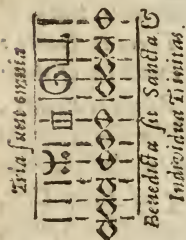 Tria ſunt omnia
Benedicta ſit Sancta &
Individua Trinitas.